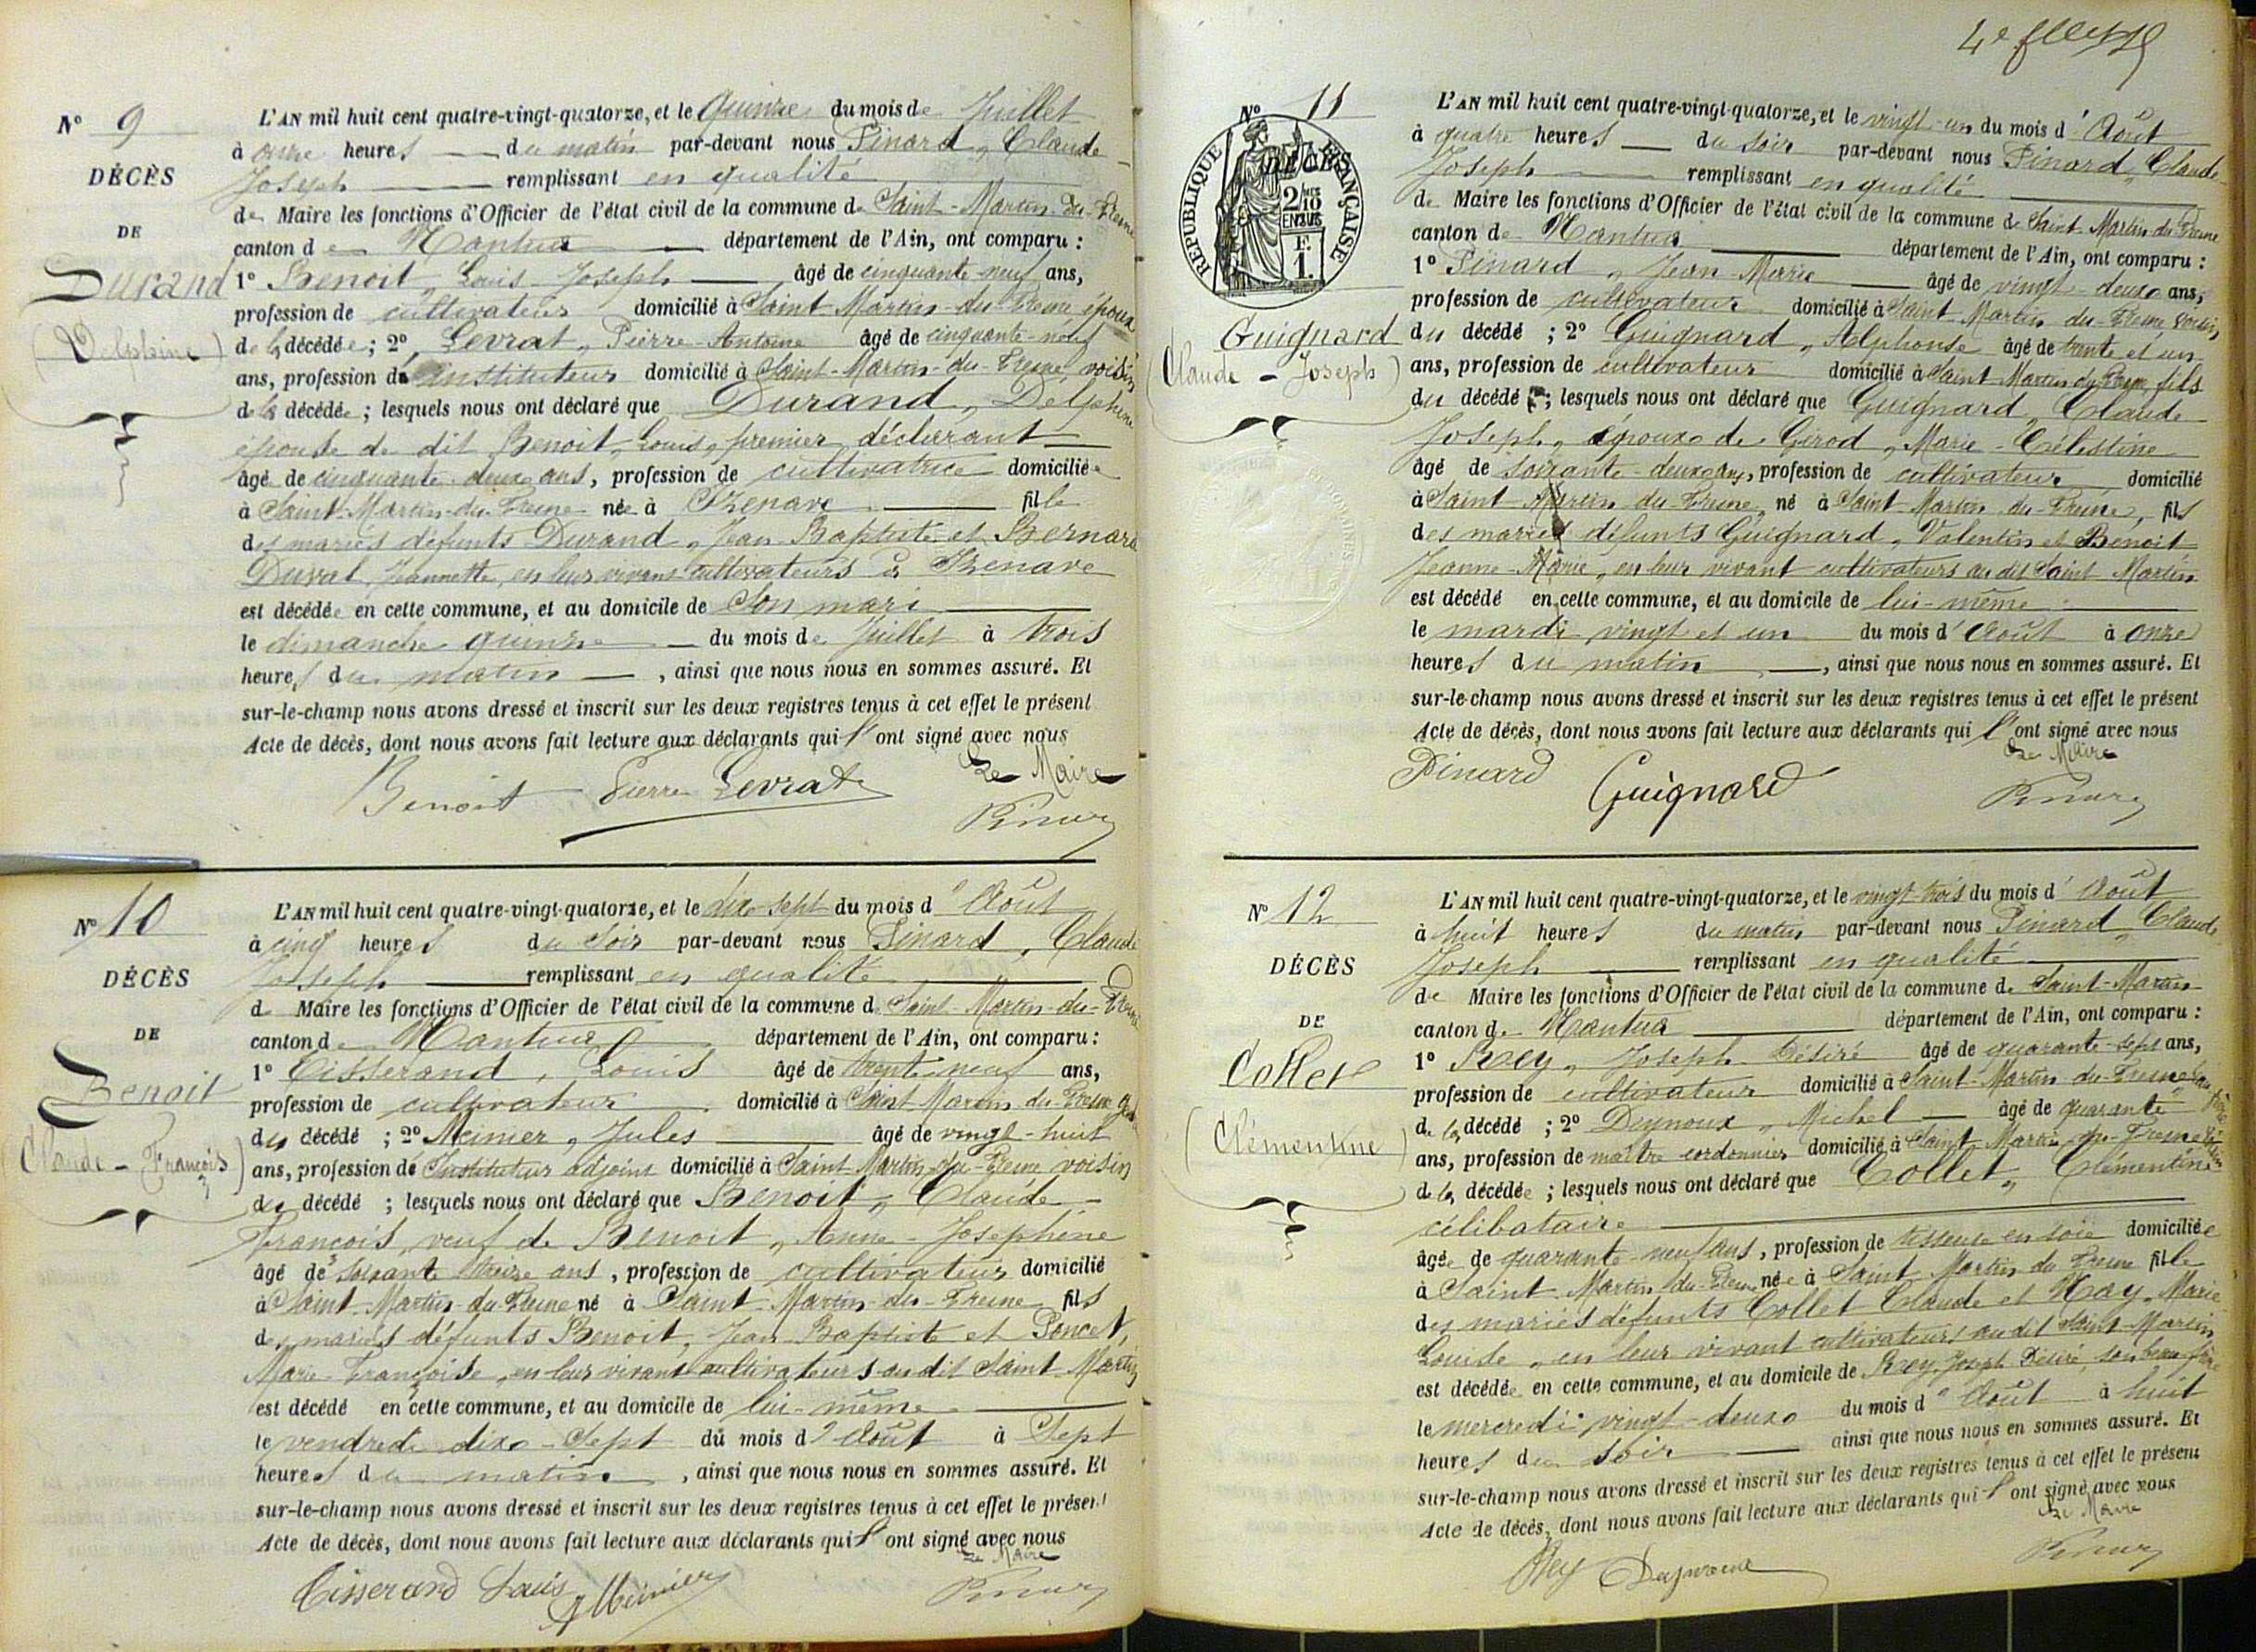 N° 9
DÉCÈS
DE
Durand
(Delphine)
L'AN mil huit cent quatre-vingt-quatorze, et le Quinze du mois de Juillet
à onze heures du matin par-devant nous Pinard, Claude
Joseph remplissant en qualité
de Maire les fonctions d'Officier de l'état civil de la commune de Saint-Martin-du-Fresne
canton de Nantua département de l'Ain, ont comparu :
1° Benoit, Louis-Joseph âgé de cinquante-neuf ans,
profession de cultivateur domicilié à Saint Martin-du-Fresne époux
de la décédée ; 2° Levrat, Pierre-Antoine âgé de cinquante-neuf
ans, profession de instituteur domicilié à Saint-Martin-du-Fresne, voisin
de la décédée ; lesquels nous ont déclaré que Durand, Delphine
épouse de dit Benoit, Louis, premier déclarant
âgé de cinquante-deux ans, profession de cultivatrice domiciliée
à Saint-Martin-du-Fresne née à Chenave fille
des mariés défunts Durand, Jean-Baptiste et Bernard
Duval, Jeannette, en leur vivant cultivateurs à Chenave
est décédée en cette commune, et au domicile de Son mari
le dimanche quinze du mois de Juillet à trois
heures du matin, ainsi que nous nous en sommes assuré. Et
sur-le-champ nous avons dressé et inscrit sur les deux registres tenus à cet effet le présent
Acte de décès, dont nous avons fait lecture aux déclarants qui l'ont signé avec nous
Le Maire
Benoit Pierre Levrat Pinard
N° 10
DÉCÈS
DE
Benoit
(Claude-François)
L'AN mil huit cent quatre-vingt-quatorze, et le dix-sept du mois d'Août
à cinq heures du Soir par-devant nous Pinard, Claude
Joseph remplissant en qualité
d Maire les fonctions d'Officier de l'état civil de la commune de Saint-Martin-du-Fresne
canton de Nantua département de l'Ain, ont comparu :
1° Tisserand, Louis âgé de trente-neuf ans,
profession de cultivateur domicilié à Saint Martin-du-Fresne
du décédé ; 2° Meinier, Jules âgé de vingt-huit
ans, profession de Instituteur adjoint domicilié à Saint-Martin-du-Fresne voisin
du décédé ; lesquels nous ont déclaré que Benoit, Claude-
François, veuf de Benoit, Anne-Joséphine
âgé de soixante treize ans, profession de cultivateur domicilié
à Saint-Martin-du-Fresne né à Saint-Martin-du-Fresne fils
des mariés défunts Benoit, Jean-Baptiste et Poncet,
Marie-Françoise, en leur vivant cultivateurs au dit Saint-Martin
est décédé en cette commune, et au domicile de lui-même
le vendredi dix-Sept du mois d'Août à Sept
heures du matin, ainsi que nous nous en sommes assuré. Et
sur-le-champ nous avons dressé et inscrit sur les deux registres tenus à cet effet le présent
Acte de décès, dont nous avons fait lecture aux déclarants qui l'ont signé avec nous
Le Maire
Tisserand Louis Meinier Pinard
N° 11
DÉCÈS
RÉPUBLIQUE FRANÇAISE
2/10 EN SUS
F. 1.
Guignard
(Claude-Joseph)
L'AN mil huit cent quatre-vingt-quatorze, et le vingt-un du mois d'Août
à quatre heures du Soir par-devant nous Pinard, Claude-
Joseph remplissant en qualité
de Maire les fonctions d'Officier de l'état civil de la commune de Saint-Martin-du-Fresne
canton de Nantua département de l'Ain, ont comparu :
1° Pinard, Jean-Marie âgé de vingt-deux ans,
profession de cultivateur domicilié à Saint-Martin-du-Fresne, voisin
du décédé ; 2° Guignard, Alphonse âgé de trente et un
ans, profession de cultivateur domicilié à Saint Martin du Fresne, fils
du décédé ; lesquels nous ont déclaré que Guignard, Claude
Joseph, époux de Girod, Marie-Célestine
âgé de soixante-deux ans, profession de cultivateur domicilié
à Saint Martin du-Fresne, né à Saint-Martin-du-Fresne, fils
des mariés défunts Guignard, Valentin et Benoit
Jeanne-Marie, en leur vivant cultivateurs au dit Saint Martin
est décédé en cette commune, et au domicile de lui-même
le mardi vingt et un du mois d'Août à onze
heures du matin, ainsi que nous nous en sommes assuré. Et
sur-le-champ nous avons dressé et inscrit sur les deux registres tenus à cet effet le présent
Acte de décès, dont nous avons fait lecture aux déclarants qui l'ont signé avec nous
Le Maire
Pinard Guignard Pinard
N° 12
DÉCÈS
DE
Collet
(Clémentine)
L'AN mil huit cent quatre-vingt-quatorze, et le vingt-trois du mois d'Août
à huit heures du matin par-devant nous Pinard, Claude
Joseph remplissant en qualité
de Maire les fonctions d'Officier de l'état civil de la commune de Saint-Martin
canton de Nantua département de l'Ain, ont comparu :
1° Rey, Joseph Désiré âgé de quarante-sept ans,
profession de cultivateur domicilié à Saint-Martin-du-Fresne beau frère
de la décédé ; 2° Deynoux, Michel âgé de quarante
ans, profession de maître cordonnier domicilié à Saint-Martin-du-Fresne voisin
de la décédée ; lesquels nous ont déclaré que Collet, Clémentine
célibataire
âgée de quarante-neuf ans, profession de tisseuse en soie domiciliée
à Saint Martin du-Fresne née à Saint Martin du Fresne fille
des mariés défunts Collet Claude et May, Marie
Louise, en leur vivant cultivateurs au dit Saint-Martin
est décédée en cette commune, et au domicile de Rey, Joseph Désiré, son beau frère
le mercredi vingt-deux du mois d'Août à huit
heures du Soir ainsi que nous nous en sommes assuré. Et
sur-le-champ nous avons dressé et inscrit sur les deux registres tenus à cet effet le présent
Acte de décès, dont nous avons fait lecture aux déclarants qui l'ont signé avec nous
Le Maire
Rey Pinard